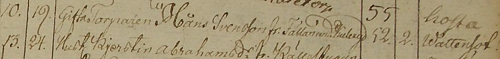 10. 19. Gifta Torparen Måns Svensson fr. Fällan 55 hosta
13. 24. Hust. Kjerstin Abrahamsd. fr. 52. 2. Wattensot.